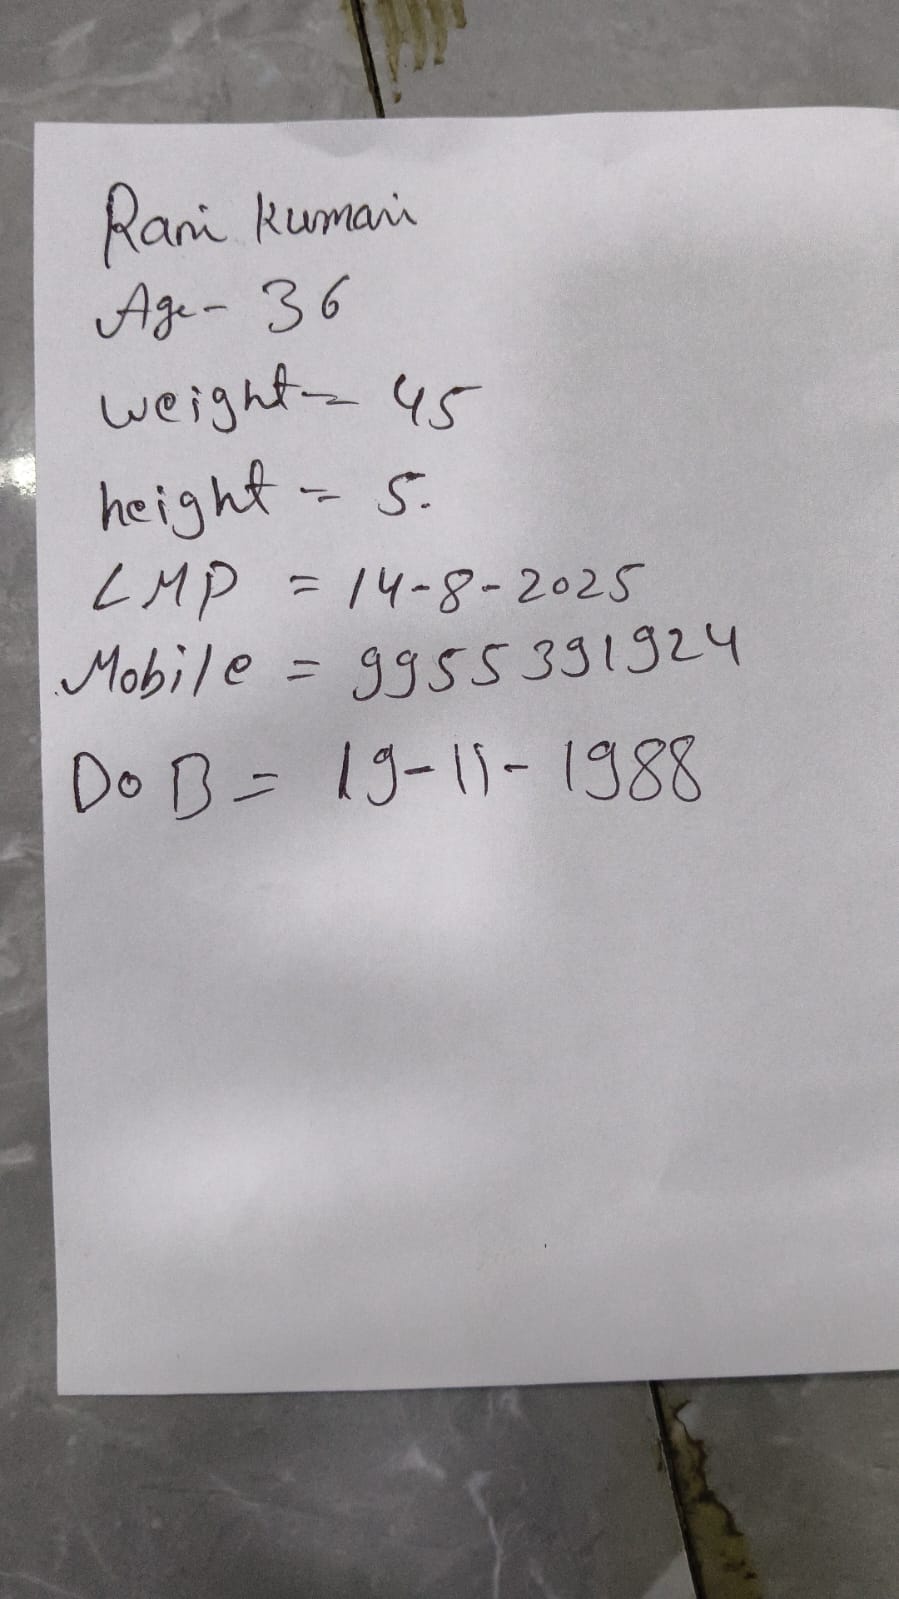 Rani Kumari
Age- 36
weight = 45
height = 5.
LMP = 14-8-2025
Mobile = 9955391924
DoB = 19-11-1988